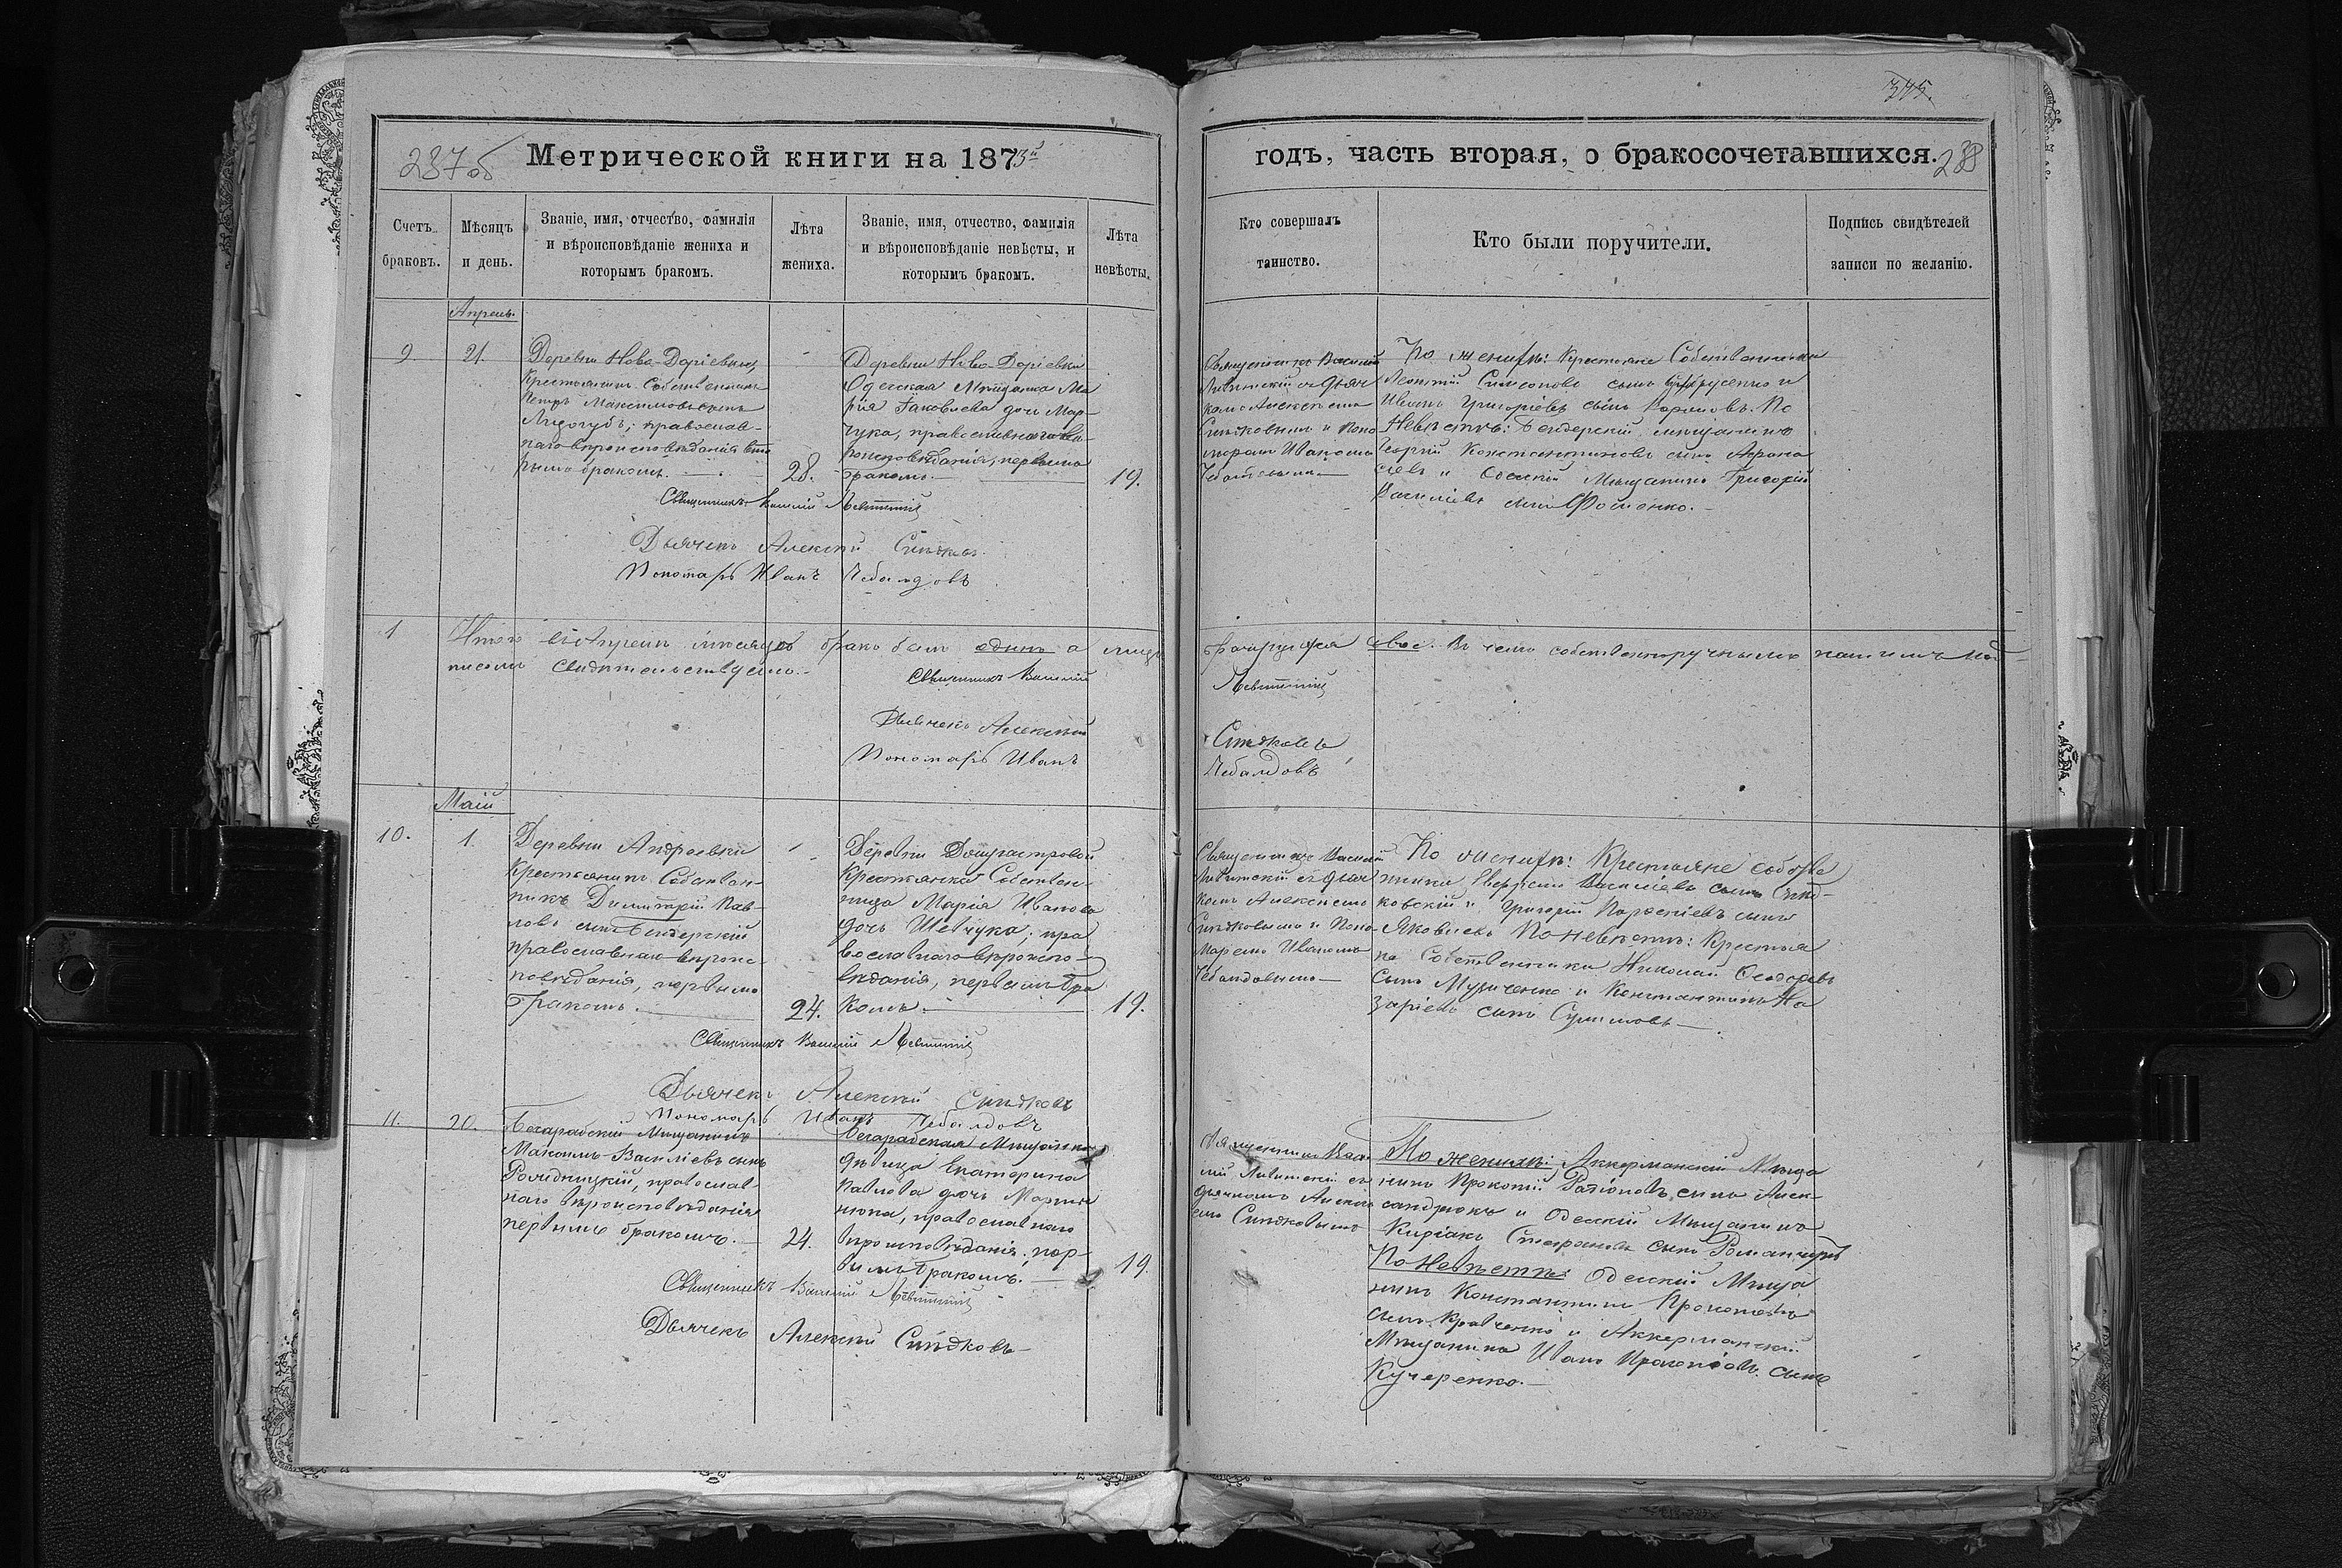 237об
Метрической книги на 1873й
Счетъ браковъ.
Мѣсяцъ и день.
Званіе, имя, отчество, фамилія
и вѣроисповѣданіе жениха и
которымъ бракомъ.
Лѣта
жениха.
Званіе, имя, отчество, фамилія
и вѣроисповѣданіе невѣсты, и
которымъ бракомъ.
Лѣта
невѣсты.
Апрель.
9
21.
Деревни Ново-Доріевки,
Крестьянинъ Собственникъ
Петръ Максимовъ сынъ
православ-
наго вѣроисповѣданія вто
рымъ бракомъ.
28.
Деревни Ново-Доріевки
Одесская Мѣщанка Ма
рія Іаковлева дочь Мар-
чука, православнаго вѣ-
роисповѣданія, первымъ
бракомъ.
19.
Священникъ Василій Левитскій
Дьячекъ Алексѣй Синдковъ
Пономарь Иванъ Чебандовъ
1
Итого въ Апрелѣ мѣсяцѣ бракъ былъ одинъ а лицъ
писомъ свидѣтельствуемъ.
Священникъ Василій
Дьячекъ Алексѣй
Пономарь Иванъ
Маій
10.
1.
Деревни Андреевки
Крестьянинъ Собствен-
никъ Димитрій Пав-
ловъ сынъ Бендерскій
православнаго вѣроис-
повѣданія, первымъ
бракомъ.
24.
Деревни
Крестьянка Собствен-
ница Марія Иванова
дочь Шевчука, пра
вославнаго вѣроиспо-
вѣданія, первымъ бра
комъ.
19.
Священникъ Василій Левитскій
Дьячекъ Алексѣй Синдковъ
Пономарь Иванъ Чебандовъ
11.
20.
Бесарабскій Мѣщанинъ
Максимъ Василіевъ сынъ
православ-
наго вѣроисповѣданія
первымъ бракомъ.
24.
Бесарабская Мѣщанка
дѣвица Екатерина
Павлова дочь Марты
нюка, православнаго
вѣроисповѣданія, пер-
вымъ бракомъ.
19.
Священникъ Василій Левитскій
Дьячекъ Алексѣй Синдковъ
345.
годъ, часть вторая, о бракосочетавшихся.
238
Кто совершалъ
таинство.
Кто были поручители.
Подпись свидѣтелей
записи по желанію.
Священникъ Василій
Левитскій съ Дьяч
комъ Алексѣемъ
Синдковымъ и Поно
маремъ Иваномъ
Чебандовымъ
По женихѣ: Крестьяне Собственники
Леонтій Симеоновъ сынъ и
Иванъ Григоріевъ сынъ По
Невѣстѣ: Бендерскій мѣщанинъ
Георгій Константиновъ сынъ Афана
сьевъ и Одесскій Мѣщанинъ Григорій
Василіевъ сынъ Фоменко.
двое. Въ чемъ собственноручнымъ нашимъ под-
Левитскій
Синдковъ
Чебандовъ
Священникъ Василій
Левитскій съ Дьяч
комъ Алексѣемъ
Синдковымъ и Поно-
маремъ Иваномъ
Чебандовымъ
По женихѣ: Крестьяне собстве
нники Василіевъ сынъ
и Григорій сынъ
Яковлевъ По невѣстѣ: Крестья
не Собственники Николай Ѳеодоровъ
сынъ и Константинъ На
заріевъ сынъ
Священникъ Васи
лій Левитскій съ
Дьячкомъ Алексѣ
емъ Синдковымъ
По женихѣ: Аккерманскій Мѣща
нинъ Прокопій сынъ Алек-
сандрюкъ и Одесскій Мѣщанинъ
Киріакъ Стефановъ сынъ
По Невѣстѣ: Одесскій Мѣща
нинъ Константинъ Прокопіевъ
сынъ Кравченко и Аккерманскій
Мѣщанинъ Иванъ Прокопіевъ сынъ
Кучеренко.